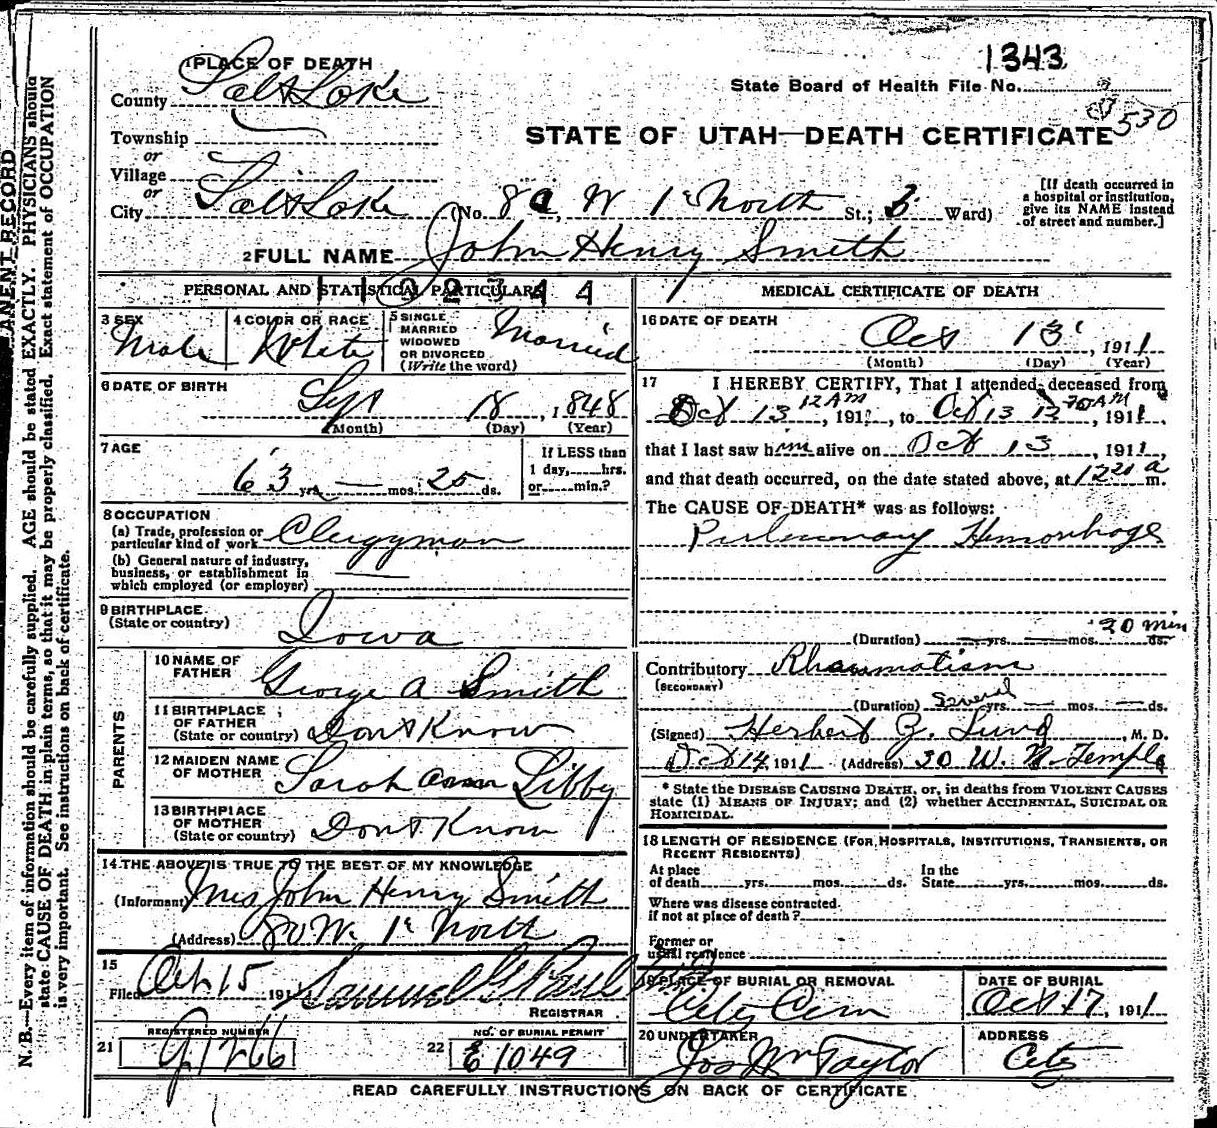 1343
PLACE OF DEATH
State Board of Health File No.
County Salt Lake
530
STATE OF UTAH—DEATH CERTIFICATE
Township
or
Village
or
City Salt Lake (No. 80, W 1st North St.; 3 Ward)
[If death occurred in a hospital or institution, give its NAME instead of street and number.]
2 FULL NAME John Henry Smith
PERSONAL AND STATISTICAL PARTICULARS
3 SEX Male
4 COLOR OR RACE White
5 SINGLE MARRIED WIDOWED OR DIVORCED (Write the word) Married
6 DATE OF BIRTH
Sept 18, 1848
(Month) (Day) (Year)
7 AGE
63 yrs. — mos. 25 ds.
If LESS than 1 day,......hrs. or......min.?
8 OCCUPATION
(a) Trade, profession or particular kind of work Clergyman
(b) General nature of industry, business, or establishment in which employed (or employer)
9 BIRTHPLACE
(State or country) Iowa
PARENTS
10 NAME OF FATHER George A Smith
11 BIRTHPLACE OF FATHER (State or country) Dont Know
12 MAIDEN NAME OF MOTHER Sarah Ann Libby
13 BIRTHPLACE OF MOTHER (State or country) Dont Know
14 THE ABOVE IS TRUE TO THE BEST OF MY KNOWLEDGE
(Informant) Mrs John Henry Smith
(Address) 80 W. 1st North
15
Filed Oct 15 191
REGISTRAR
REGISTERED NUMBER
21
NO. OF BURIAL PERMIT
22 E 1049
MEDICAL CERTIFICATE OF DEATH
16 DATE OF DEATH
Oct 13, 1911
(Month) (Day) (Year)
17 I HEREBY CERTIFY, That I attended deceased from
Oct 13 12 AM, 1911, to Oct 13 12 20 AM, 1911,
that I last saw him alive on Oct 13, 1911,
and that death occurred, on the date stated above, at 12 20 a m.
The CAUSE OF DEATH* was as follows:
Pulmonary Hemorrhage
(Duration) — yrs. — mos. 20 min ds.
Contributory Rheumatism
(SECONDARY)
(Duration) several yrs. — mos. — ds.
(Signed) Herbert Z. Lund, M. D.
Oct 14, 1911 (Address) 30 W. N. Temple
* State the DISEASE CAUSING DEATH, or, in deaths from VIOLENT CAUSES
state (1) MEANS OF INJURY; and (2) whether ACCIDENTAL, SUICIDAL OR
HOMICIDAL.
18 LENGTH OF RESIDENCE (FOR HOSPITALS, INSTITUTIONS, TRANSIENTS, OR
RECENT RESIDENTS)
At place of death......yrs.......mos.......ds. In the State......yrs.......mos.......ds.
Where was disease contracted
if not at place of death?
Former or
usual residence
19 PLACE OF BURIAL OR REMOVAL
City Cem
DATE OF BURIAL
Oct 17, 1911
20 UNDERTAKER
Jos Wm Taylor
ADDRESS
City
READ CAREFULLY INSTRUCTIONS ON BACK OF CERTIFICATE
ANENT RECORD
N. B.—Every item of information should be carefully supplied. AGE should be stated EXACTLY. PHYSICIANS should
state CAUSE OF DEATH in plain terms, so that it may be properly classified. Exact statement of OCCUPATION
is very important. See instructions on back of certificate.